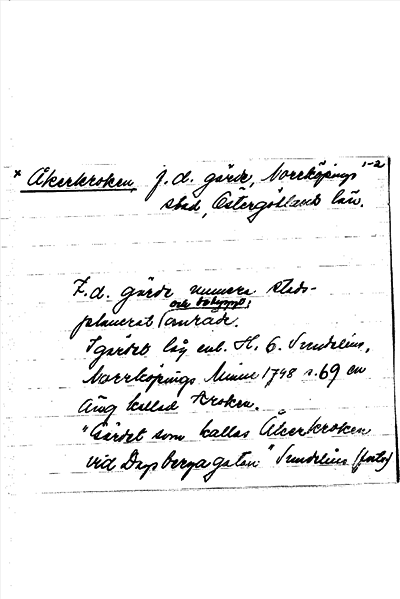 1-2
× Åkerkroken f.d. gärde, Norrköpings
stad, Östergötlands län.
F.d. gärde numera stads-
och bebyggt
planerat område.
I gärdet låg enl. H. O. Sundelius,
Norrköpings Minne 1798 s. 69 en
äng kallad Kroken.
"Gärdet som kallas Åkerkroken
vid Dagsbergagatan" Sundelius